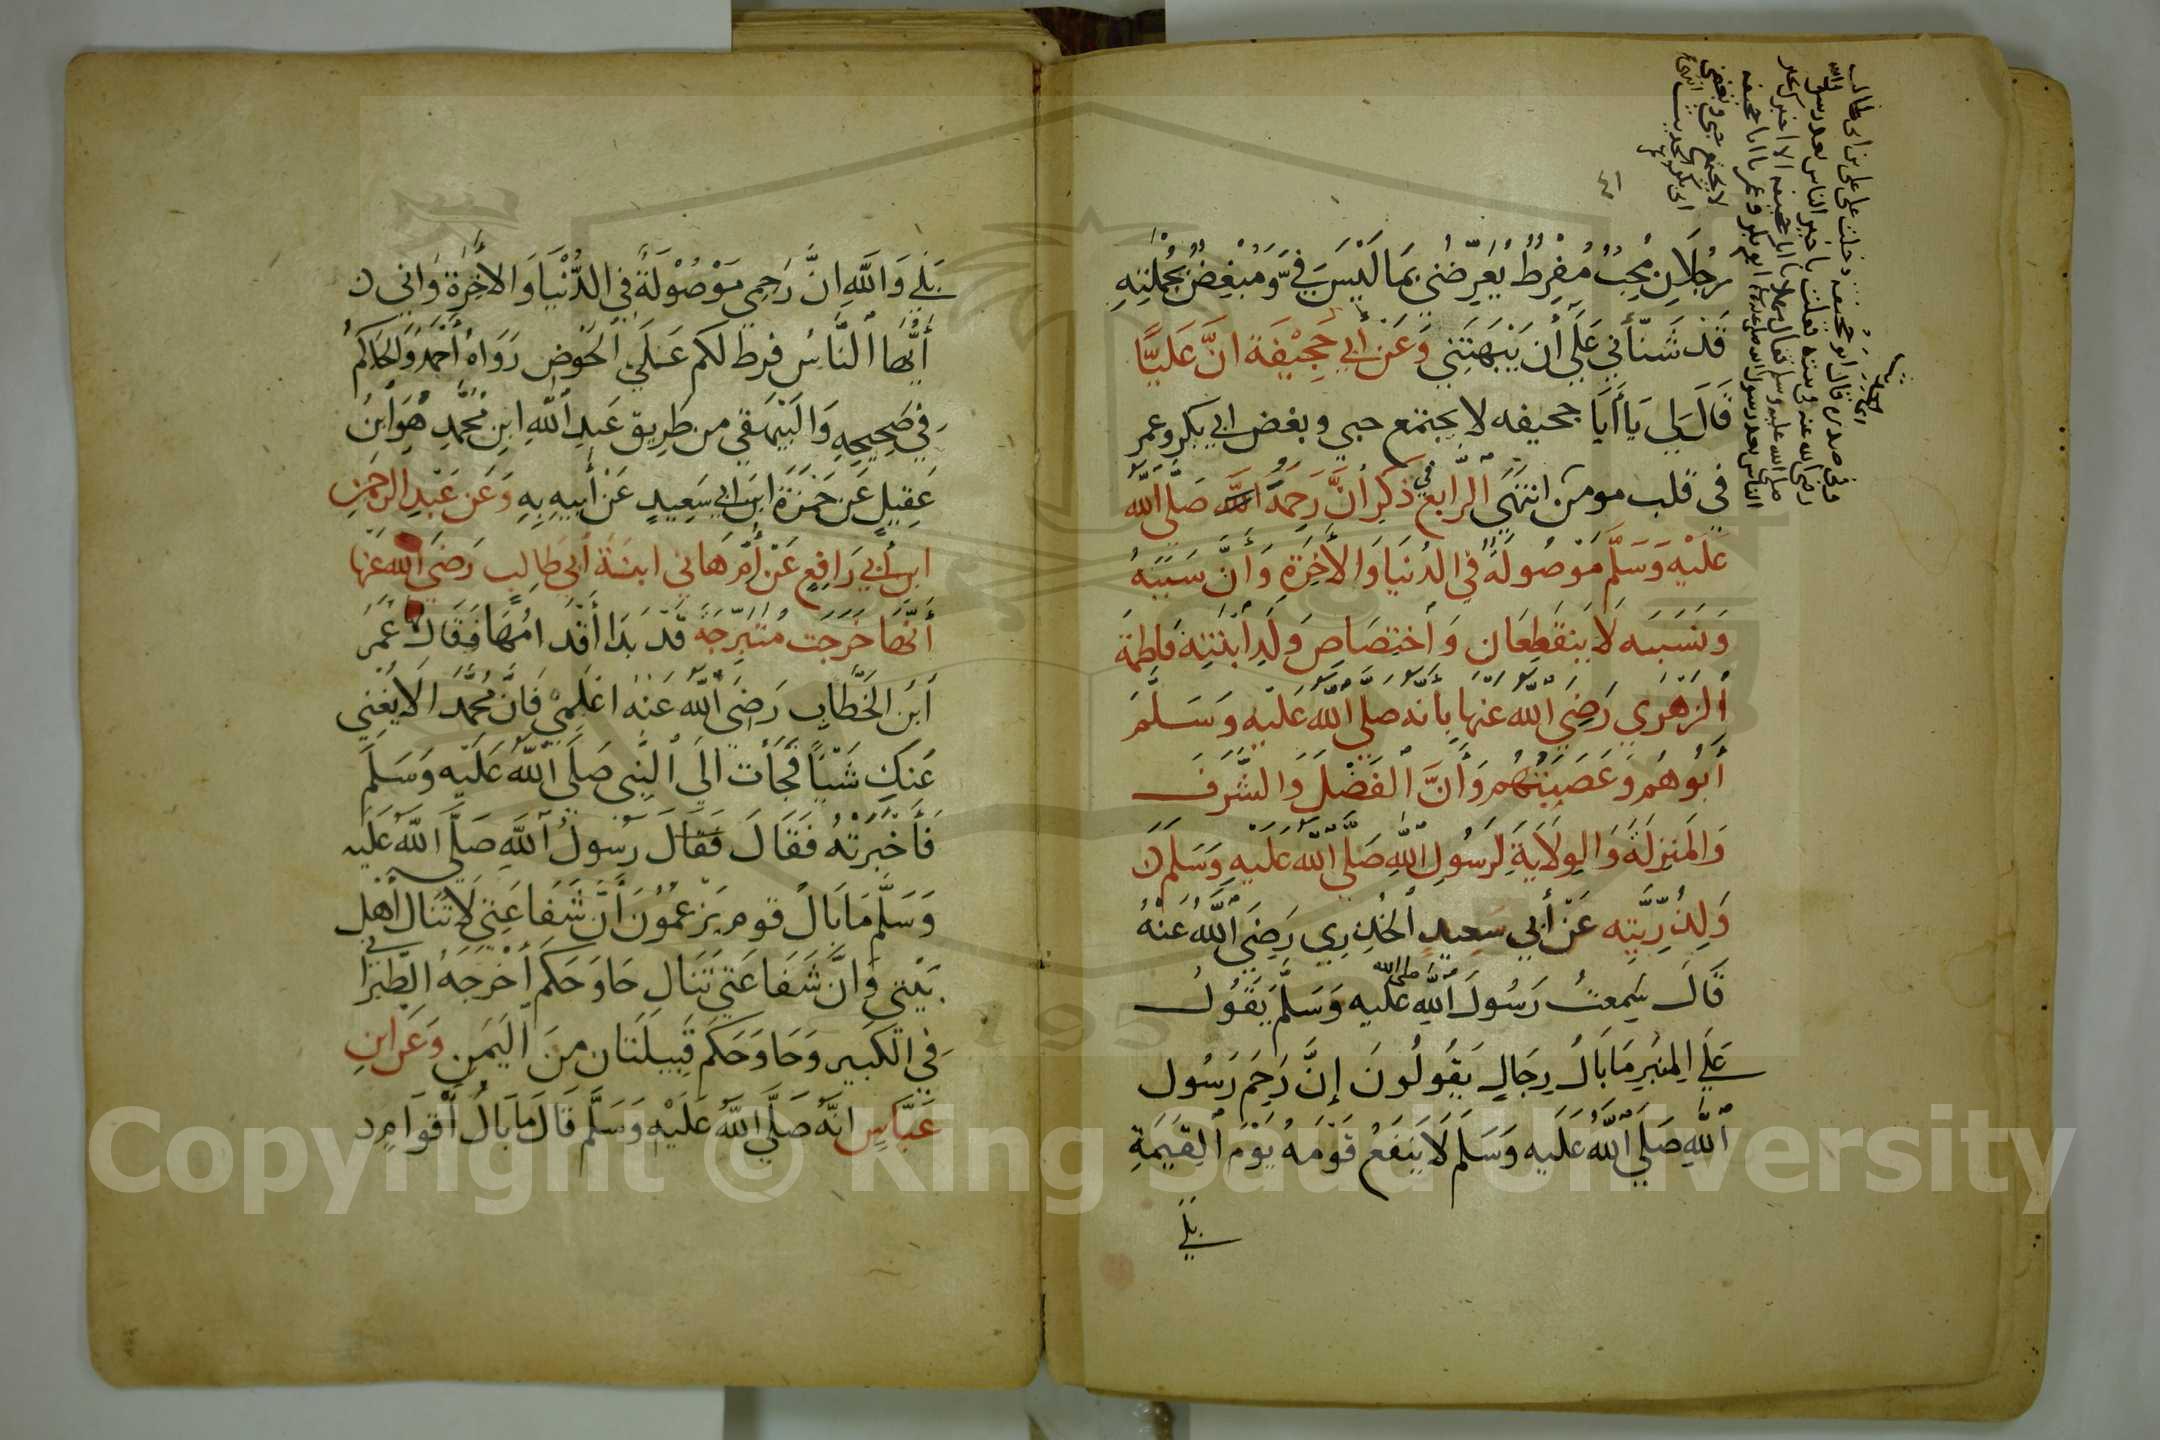 ٤١
رجُلَانِ مُحِبٌّ مُفرِطٌ يُعَرِّضُنِي بِمَا لَيْسَ فِيَّ وَمُبْغِضٌ يَحْمِلُنِيهِ
قَدْ شَنَّأَنِي عَلَى أَن يَبْهَتَنِي وَعَن أَبِي جَحِيْفَة انَّ عَليًّا
قَالَ لِي يَا أَبَا جحيفه لا يجتمع حبي وبغض ابي بكر وعمر
في قلب مومن انتهَى الرَّابع في ذكر انَّ رَحِمَهُ صَلَّى اللّه
عَلَيْه وَسَلَّم مَوْصُولَةٌ في الدُنيَا وَالأَخِرَةِ وَأَنَّ سَبَبَهُ
وَنَسَبَه لَا يَنقَطِعَان وَاختِصَاص وَلَدِ ابْنَتِه فَاطِمَة
الزهْرِي رَضِيَ اللّه عنهَا بِأنه صلى اللّه عَليه وَسَلَّم
أَبُوهُم وَعَصَبَتهُم وَأَنَّ الفَضْلَ وَالشَّرَفَ
وَالمنزِلَةَ وَالوِلَايَةَ لِرَسُولِ اللّهِ صَلَّى اللّه عَلَيْهِ وَسَلَّم
وَلِذُرِّيَّتِه عَنْ أَبِي سَعِيدٍ الخُدرِي رَضِيَ اللَّهُ عَنْهُ
قَالَ سَمِعتُ رَسُولَ اللّه صلى الله عليه وَسَلَّم يَقُولُ
عَلَى المِنبَرِ مَا بَالُ رِجَالٍ يَقُولُونَ إِنَّ رَحِمَ رَسُول
اللّهِ صَلَّى اللّهُ عَلَيه وَسَلَّم لَا يَنفَعُ قَوْمَهُ يَوْمَ القِيَمَةِ
بَلَى
بَلَى وَاللَّهِ انَّ رَحِمِي مَوْصُوْلَةٌ فِي الدُّنْيَا وَالأخِرَةِ وَاني
أَيُّهَا النَّاسُ فرط لكم عَلَى الحَوْض رَوَاهُ أَحْمَدُ وَالحَاكمُ
فِي صَحِيحِهِ وَالبَيْهَقِي من طَرِيق عَبدِ اللّهِ ابنِ مُحَمَّدٍ هُوَ ابنُ
عَقِيلٍ عَن حَمْزَة ابن ابي سَعِيدٍ عَنْ أَبِيهِ بِهِ وَعَن عَبْدِ الرحمنِ
ابن أَبِي رَافِعٍ عَنْ أُمّ هَاني ابنَة أَبي طَالِب رَضَى اللّه عَنها
أَنَّهَا خَرَجَت مُتَبَرِّجَة قَدْ بَدَا أقدَامُهَا فَقَالَ عُمَرُ
ابنُ الخَطَّابِ رَضِيَ اللّه عَنْهُ اعْلَمِي فَانَّ مُحَمَّدًا لَا يُغْنِي
عَنكِ شَيْئًا فَجَأَت الَى النَّبِى صَلَّى اللّه عَلَيه وَسَلَّم
فَأَخْبَرَتْهُ فَقَالَ فَقَالَ رَسُولُ اللّهِ صَلَّى اللّهُ عَلَيه
وَسَلَّم مَا بَالُ قوم يَزعمُونَ أَنَّ شَفَاعَتِي لَا تَنَال أَهْل
بَيْتِي وَانَّ شَفَاعَتِي تَنَالِ حَا وَحَكَم أَخْرَجَهُ الطبرَاني
في الكَبِير وَحَا وَحَكَم قَبِيلَتَان مِنَ اليَمَنِ وَعَن ابنِ
عَبَّاسٍ انَّهُ صَلَّى اللّه عَلَيْه وَسَلَّم قَالَ مَا بَالُ أَقوَامٍ
Copyright © King Saud University